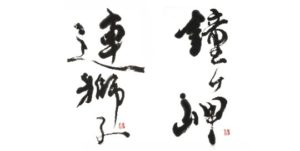 鐘ヶ岬
連獅子